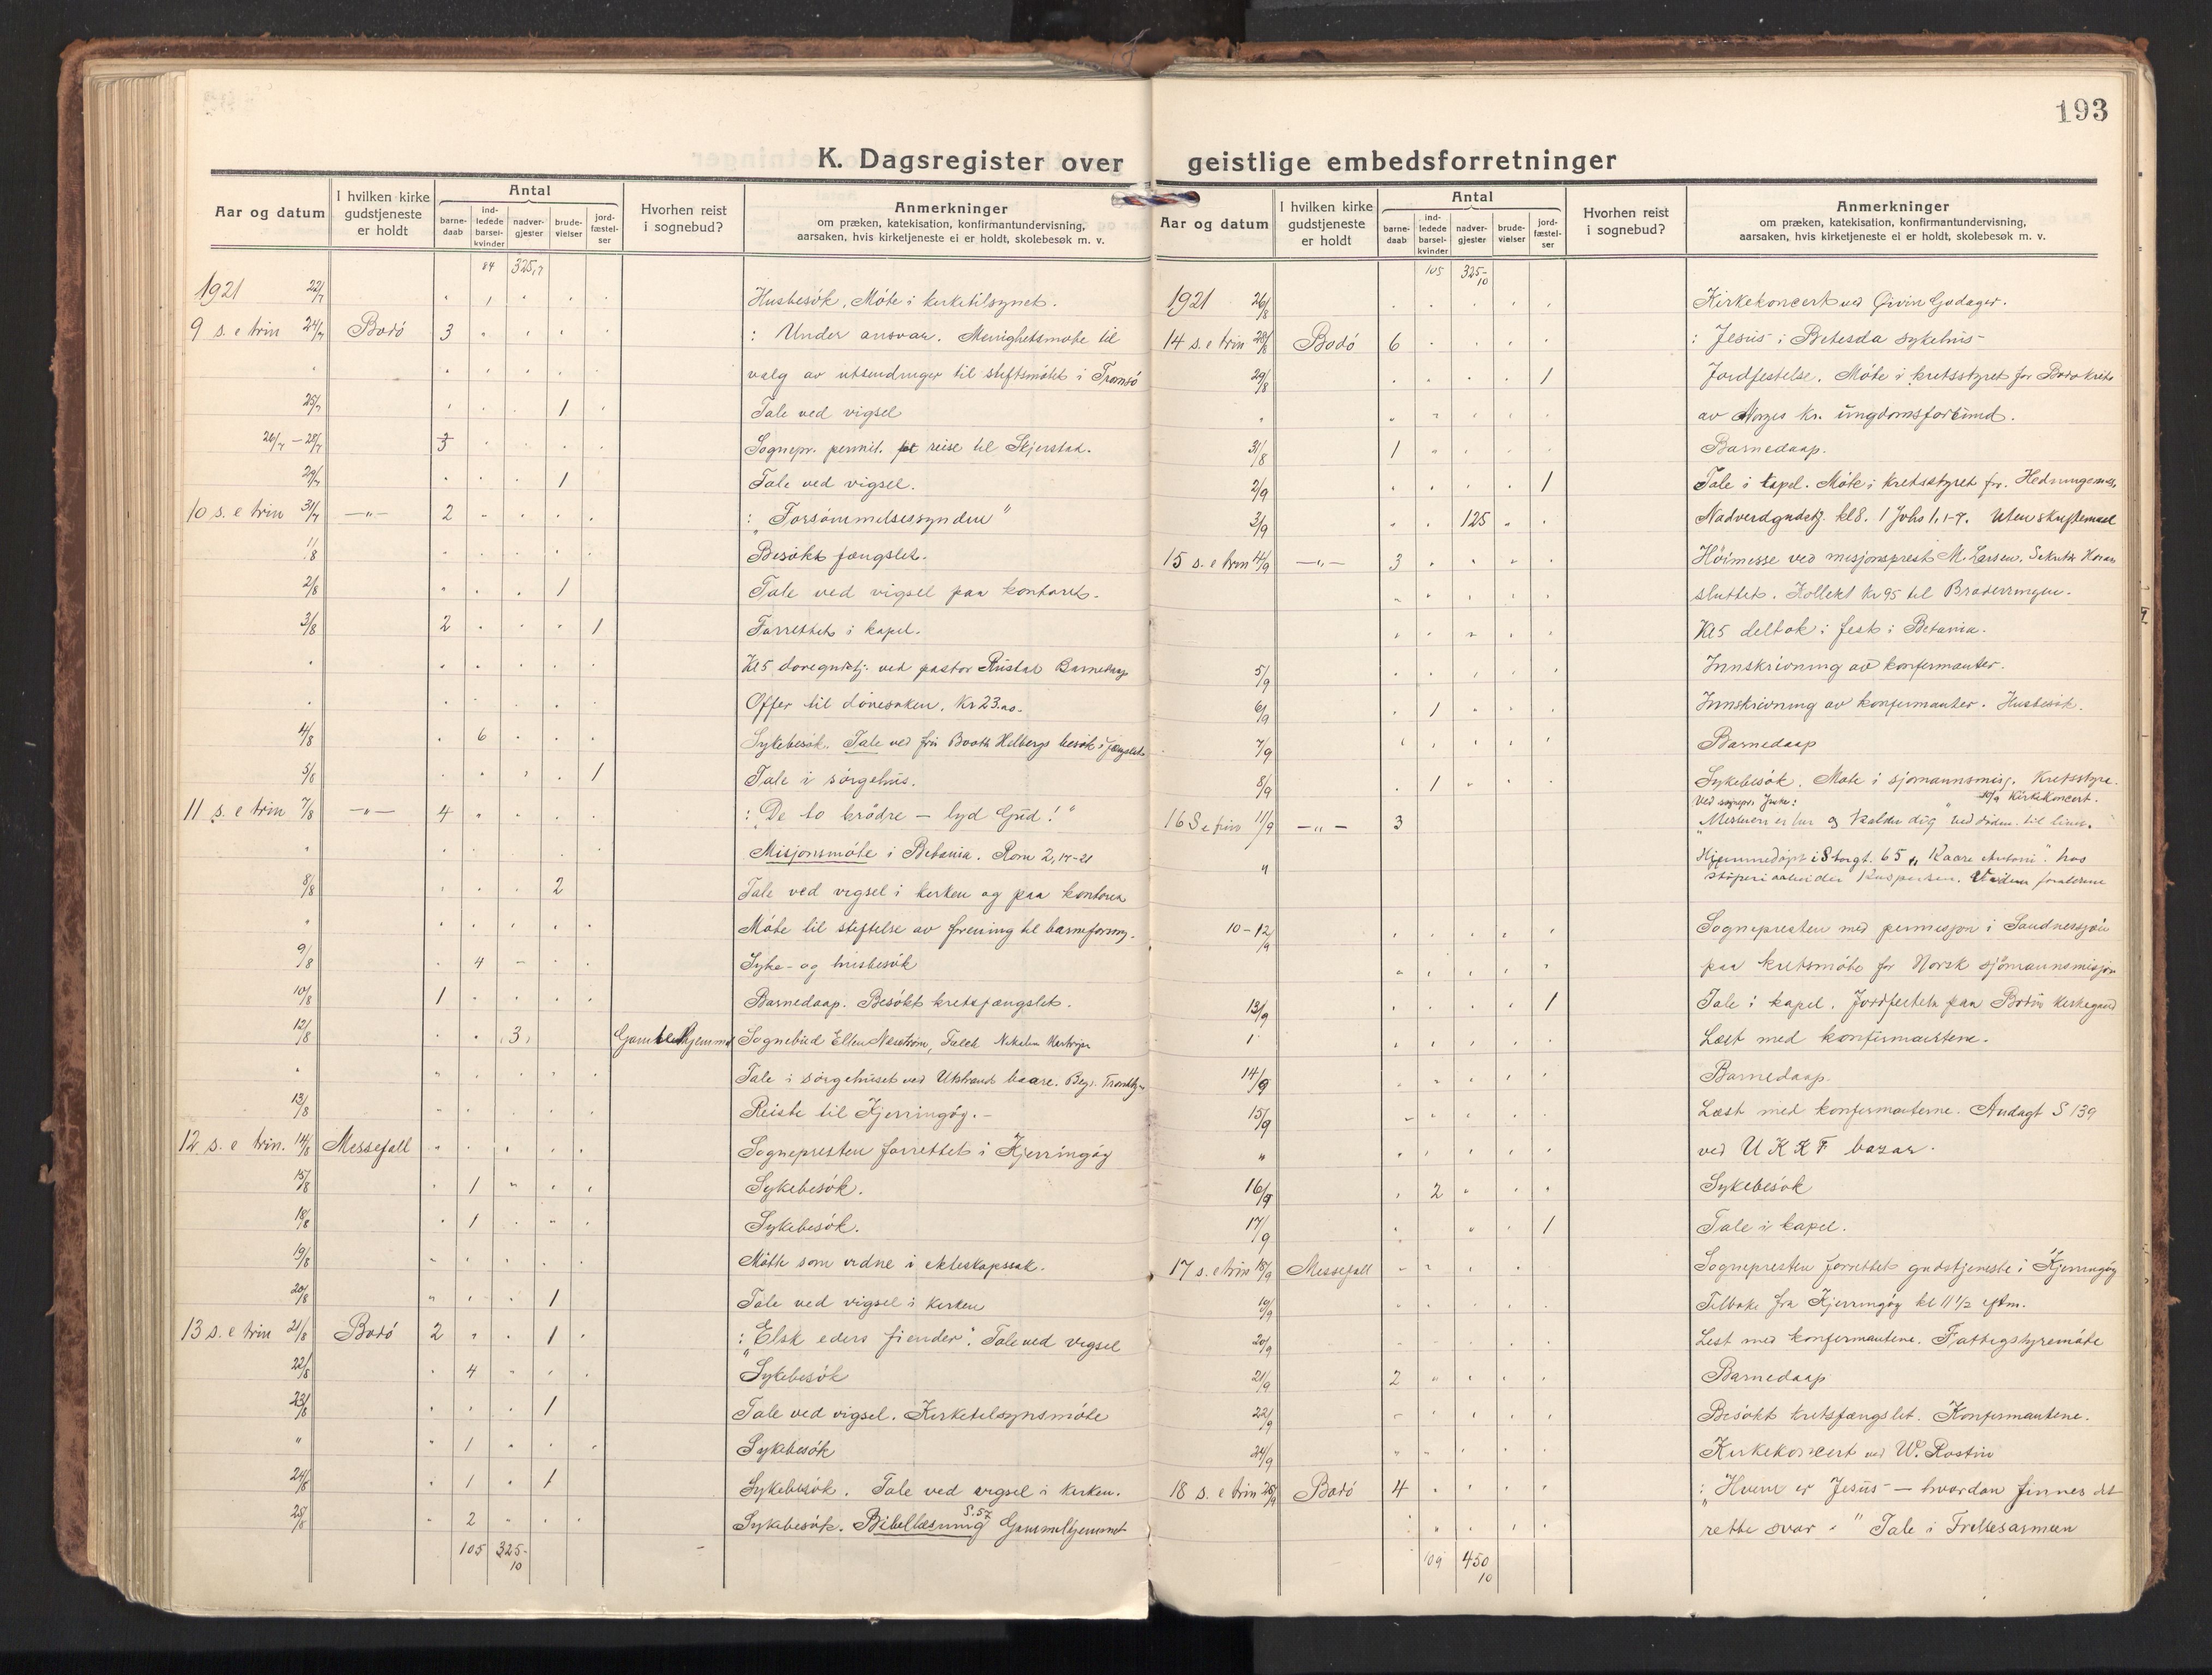 193
K. Dagsregister over geistlige embedsforretninger
Aar og datum
I hvilken kirke gudstjeneste er holdt
Antal
barne-daab
ind-ledede barsel-kvinder
nadver-gjester
brude-vielser
jord-fæstel-ser
Hvorhen reist i sognebud?
Anmerkninger
om præken, katekisation, konfirmantundervisning,
aarsaken, hvis kirketjeneste ei er holdt, skolebesøk m. v.
84 325,7
1921 22/7 Husbesök, Möte i kirketilsynet.
9 s. e trin 24/7 Bodö 3 : Under ansvar. Menighetsmøte til
valg av utsendinger til stiftsmötet i Tromsö
25/7 1 Tale ved vigsel
26/7 – 28/7 3 Sognepr. permit. reise til Skjerstad.
29/7 1 Tale ved vigsel.
10 s. e trin 31/7 —"— 2 : "Forsömmelsessynden"
1/8 Besökt fængslet.
2/8 1 Tale ved vigsel paa kontoret.
3/8 2 1 Forrettet i kapel.
Kl 5 ved pastor Barnedaap
Offer til Kr 23.00.
4/8 6 Sykebesök. Tale ved fru Booth Helbergs besök i fængslet
5/8 1 Tale i sörgehus.
11 s. e trin 7/8 —"— 4 : "De to brödre – lyd Gud!"
Misjonsmöte i Betania. Rom 2,17-21
8/8 2 Tale ved vigsel i kirken og paa kontoret
Möte til stiftelse av forening til barneforsorg.
9/8 4 Syke- og husbesök
10/8 1 Barnedaap. Besökt kretsfængslet.
12/8 3 Gamlehjemmet Sognebud Ellen
Tale i sörgehuset ved baare.
13/8 Reiste til Kjerringöy.–
12 s. e trin. 14/8 Messefall Sognepresten forrettet i Kjerringöy
15/8 1 Sykebesök.
18/8 1 Sykebesök.
19/8 Mötte som vidne i ekteskapssak.
20/8 1 Tale ved vigsel i kirken
13 s. e trin 21/8 Bodö 2 1 : "Elsk eders fiender". Tale ved vigsel
22/8 4 Sykebesök
23/8 1 Tale ved vigsel. Kirketilsynsmöte
" 1 Sykebesök
24/8 1 1 Sykebesök. Tale ved vigsel i kirken.
25/8 2 Sykebesök. Bibellæsning S. 57 Gammelhjemmet
105 325-10
Aar og datum
I hvilken kirke gudstjeneste er holdt
Antal
barne-daab
ind-ledede barsel-kvinder
nadver-gjester
brude-vielser
jord-fæstel-ser
Hvorhen reist i sognebud?
Anmerkninger
om præken, katekisation, konfirmantundervisning,
aarsaken, hvis kirketjeneste ei er holdt, skolebesøk m. v.
105 325-10
1921 26/8 Kirkekoncert ved Öivin Godager.
14 s. e trin 28/8 Bodö 6 : Jesus i Betesda sykehus-
29/8 1 Jordfestelse. Möte i kretsstyret for Bodö krets
av Norges kr. ungdomsforbund.
31/8 1 Barnedaap.
2/9 1 Tale i kapel. Möte i kretsstyret for Hedningemis.
3/9 125 Nadverdgudstj. kl 8. 1 Johs 1, 1-7. Uten skriftemaal
15 s. e trin 4/9 —"— 3 Höimesse ved misjonsprest M. Larsen.
sluttet. Kollekt Kr 95 til Broderringen.
Kl 5 deltok i fest i Betania.
5/9 Innskrivning av konfirmanter.
6/9 1 Innskrivning av konfirmanter. Husbesök.
7/9 Barnedaap
8/9 1 Sykebesök. Möte i sjömannsmisj. Kretsstyre.
Ved sognepr. : 10/9 Kirkekoncert.
16 S e trin 11/9 —"— 3 "Mesteren er her og kalder dig"
" Hjemmedöpt i Storgt. 65 "Kaare Antoni" hos
foraldrene
10–12/9 Sognepresten med permisjon i Sandnessjöen
paa kretsmöte for Norsk sjömannsmisjon
13/9 1 Tale i kapel. Jordfestelse paa Bodin kirkegaard
Læst med konfirmantene.
14/9 Barnedaap.
15/9 Læst med konfirmanterne. Andagt S 139
" ved U K K F bazar.
16/9 2 Sykebesök
17/9 1 Tale i kapel.
17 s. e trin 18/9 Messefall Sognepresten forrettet gudstjeneste i Kjerringöy
19/9 Tilbake fra Kjerringöy kl 11 1/2 eftm.
20/9 Lest med konfirmantene. Fattigstyremöte
21/9 2 Barnedaap
22/9 Besökt kretsfængslet. Konfirmantene.
24/9 Kirkekoncert ved W. Rostin
18 s. e trin 25/9 Bodö 4 : "Hvem er Jesus – hvordan finnes det
rette svar." Tale i Frelsesarmeen
109 450 10